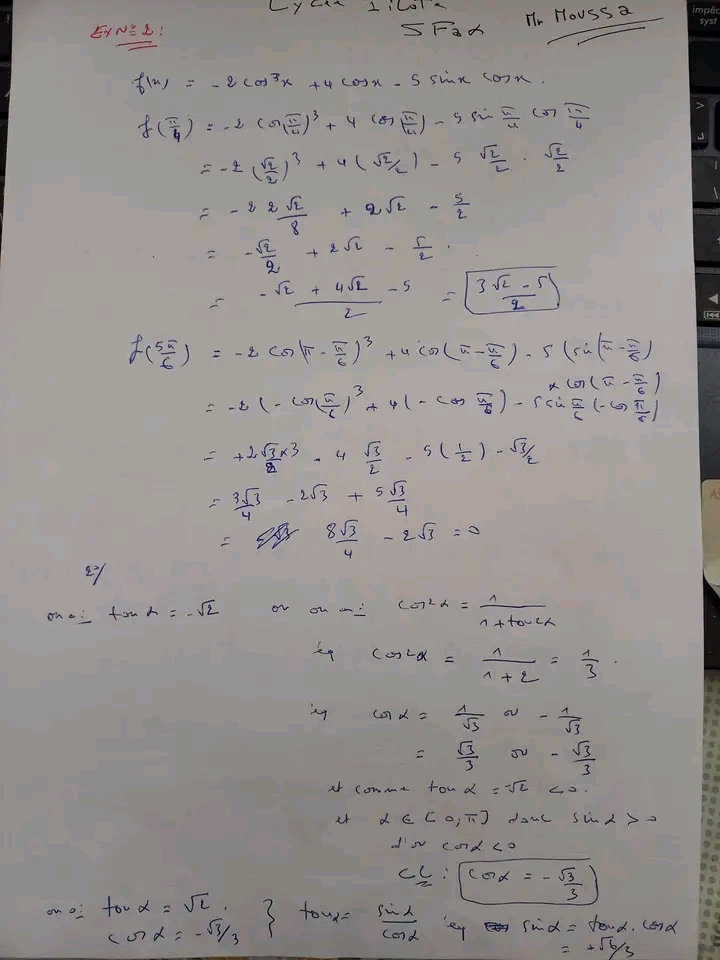 Lycée Pilote
SFax
Mr Moussa
Ex N° 2 :
f(x) = -2 cos³x + 4 cosx - 5 sinx cosx.
f(π/4) = -2 cos(π/4)³ + 4 cos(π/4) - 5 sin π/4 cos π/4
= -2 (√2/2)³ + 4(√2/2) - 5 √2/2 . √2/2
= -2 2√2/8 + 2√2 - 5/2
= -√2/2 + 2√2 - 5/2 .
= (-√2 + 4√2 - 5)/2 = (3√2 - 5)/2
f(5π/6) = -2 cos(π - π/6)³ + 4 cos(π - π/6) - 5 (sin(π - π/6)
x cos(π - π/6)
= -2 (-cos(π/6))³ + 4(-cos π/6) - 5 sin π/6 (-cos π/6)
= +2√3/8 x3 - 4 √3/2 - 5(1/2) - √3/2
= 3√3/4 - 2√3 + 5√3/4
= 8√3/4 - 2√3 = 0
2°/
on a : tan α = -√2 or on a : cos²α = 1/(1+tan²α)
éq cos²α = 1/(1+2) = 1/3 .
éq cosα = 1/√3 ou - 1/√3
= √3/3 ou - √3/3
et comme tan α = -√2 < 0.
et α ∈ [0;π] donc sinα > 0
d'où cosα < 0
CL : cosα = - √3/3
on a : tanα = √2 . } tanα = sinα/cosα éq sinα = tanα . cosα
cosα = -√3/3 = +√6/3